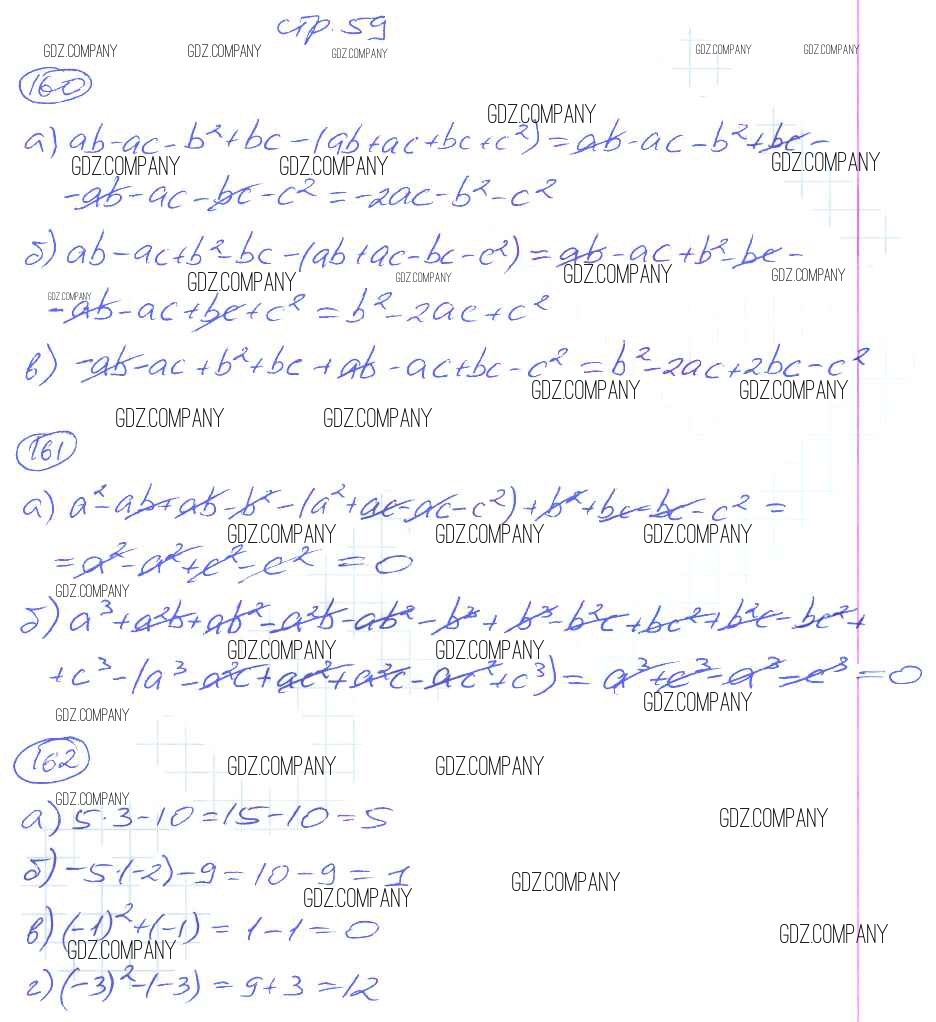 стр. 59
GDZ.COMPANY GDZ.COMPANY GDZ.COMPANY GDZ.COMPANY GDZ.COMPANY
160
GDZ.COMPANY
а) ab-ac-b²+bc-(ab+ac+bc+c²)=ab-ac-b²+bc-
GDZ.COMPANY GDZ.COMPANY GDZ.COMPANY
-ab-ac-bc-c²=-2ac-b²-c²
б) ab-ac+b²-bc-(ab+ac-bc-c²)=ab-ac+b²-bc-
GDZ.COMPANY GDZ.COMPANY GDZ.COMPANY GDZ.COMPANY
GDZ.COMPANY
-ab-ac+bc+c²=b²-2ac+c²
в) -ab-ac+b²+bc+ab-ac+bc-c²=b²-2ac+2bc-c²
GDZ.COMPANY GDZ.COMPANY
GDZ.COMPANY GDZ.COMPANY
161
а) a²-ab+ab-b²-(a²+ac-ac-c²)+b²+bc-bc-c²=
GDZ.COMPANY GDZ.COMPANY GDZ.COMPANY
=a²-a²+c²-c²=0
GDZ.COMPANY
б) a³+a²b+ab²-a²b-ab²-b³+b³-b²c+bc²+b²c-bc²+
GDZ.COMPANY GDZ.COMPANY
+c³-(a³-a²c+ac²+a²c-ac²+c³)=a³+c³-a³-c³=0
GDZ.COMPANY
GDZ.COMPANY
162
GDZ.COMPANY GDZ.COMPANY
GDZ.COMPANY
а) 5·3-10=15-10=5
GDZ.COMPANY
б) -5·(-2)-9=10-9=1
GDZ.COMPANY GDZ.COMPANY
в) (-1)²+(-1)=1-1=0
GDZ.COMPANY GDZ.COMPANY
г) (-3)²-(-3)=9+3=12